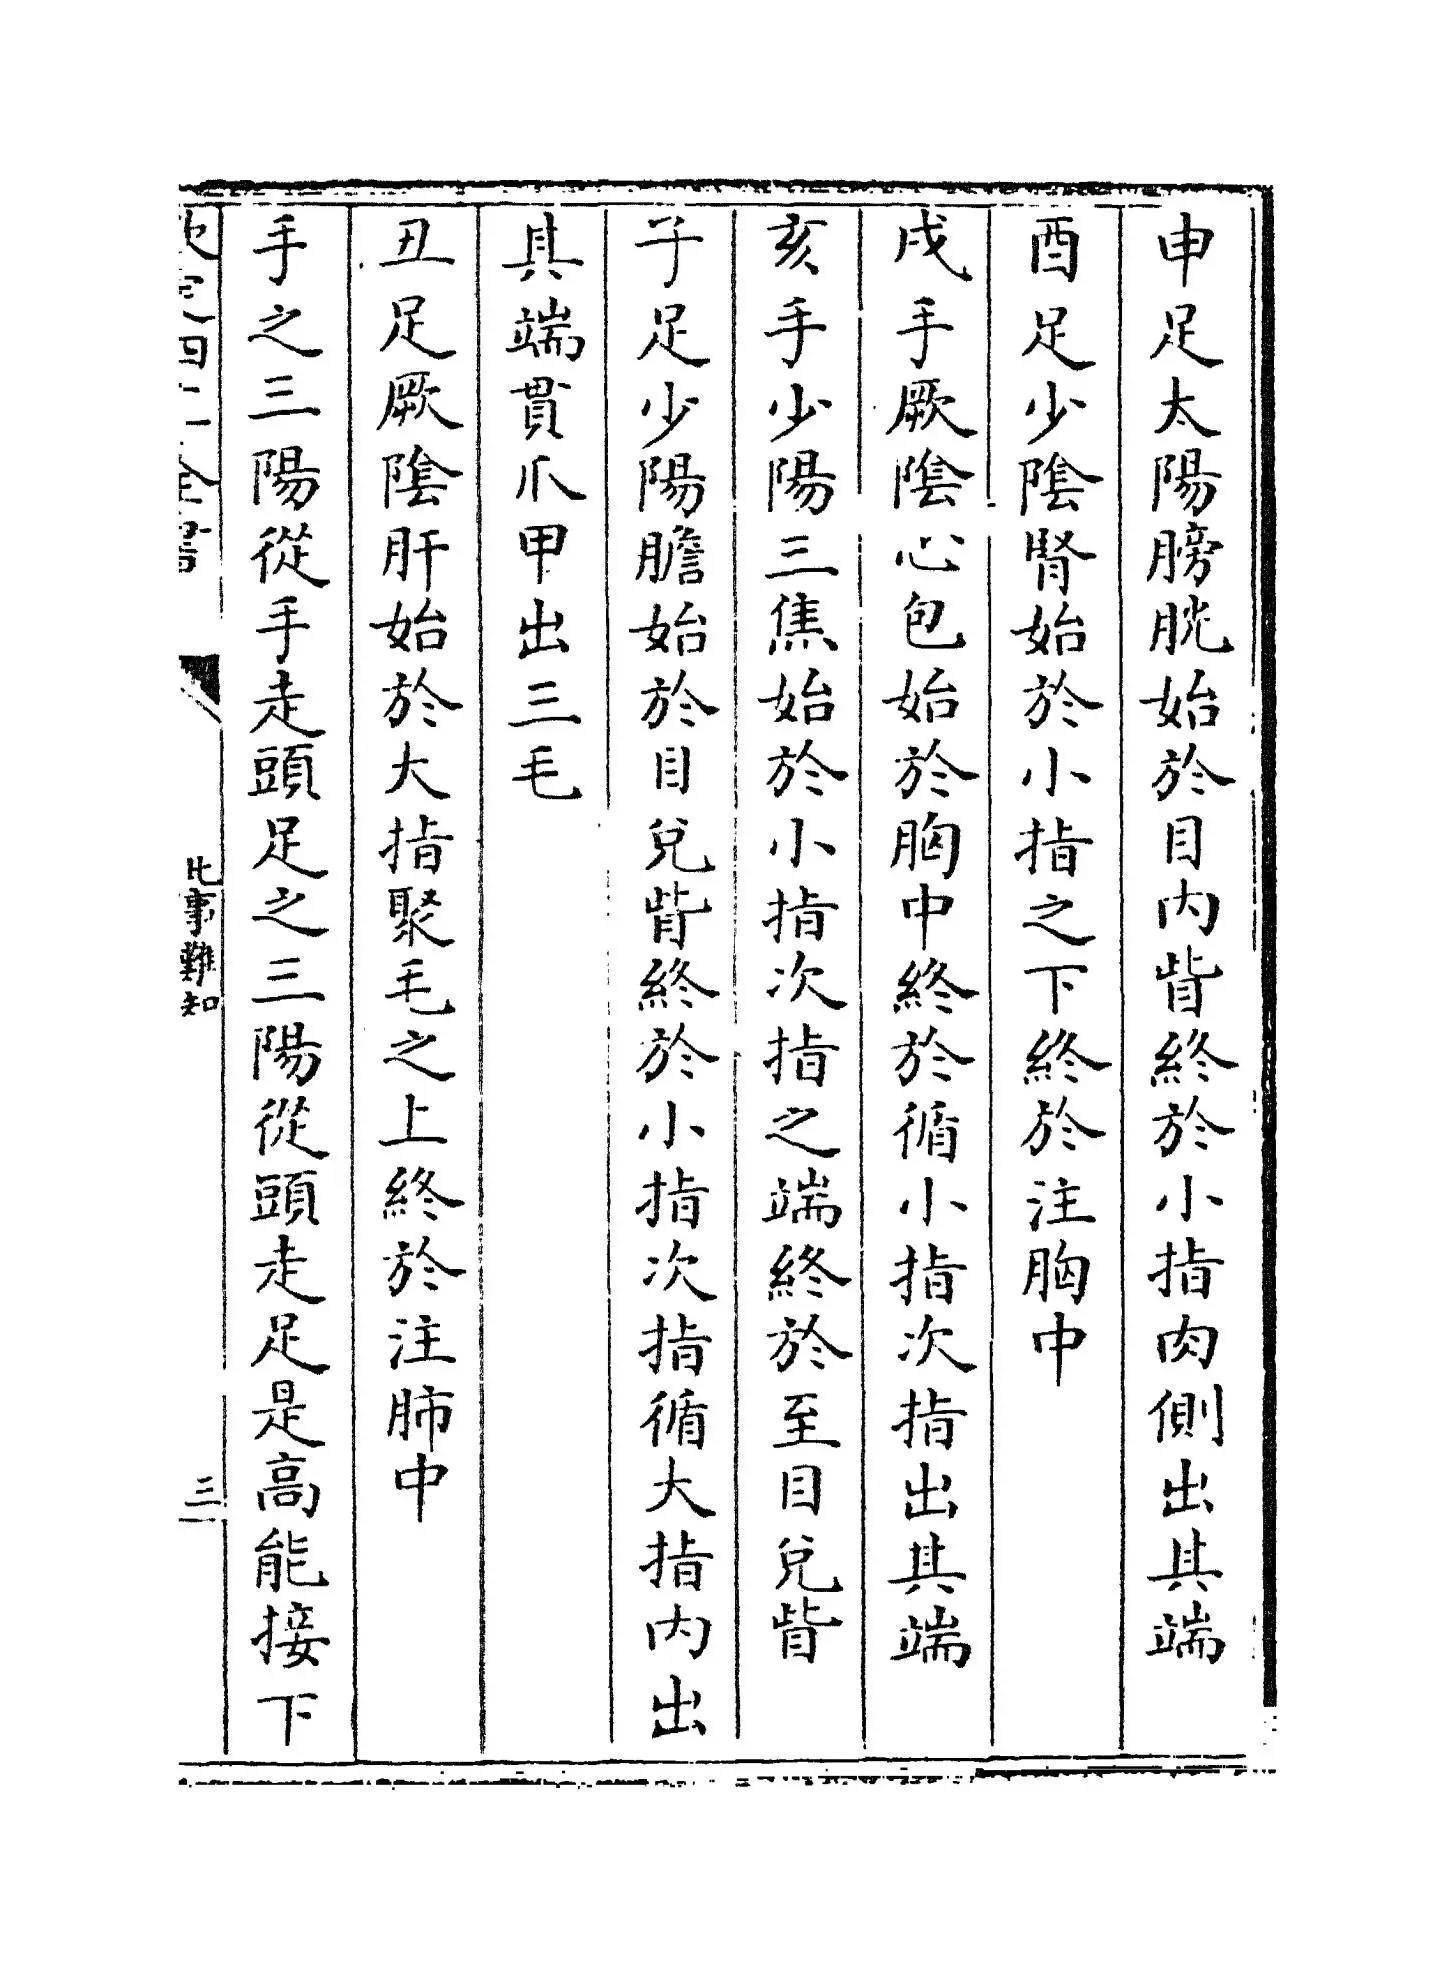 申足太陽膀胱始於目内眥終於小指肉側出其端
酉足少陰腎始於小指之下終於注胸中
戌手厥陰心包始於胸中終於循小指次指出其端
亥手少陽三焦始於小指次指之端終於至目兌眥
子足少陽膽始於目兌眥終於小指次指循大指内出
其端貫爪甲出三毛
丑足厥陰肝始於大指聚毛之上終於注肺中
手之三陽從手走頭足之三陽從頭走足是高能接下
欽定四庫全書
此事難知
三